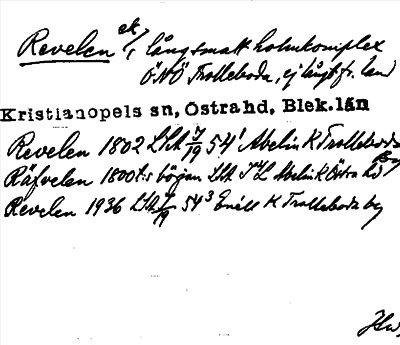 Revelen ek/, långsmalt holmkomplex
ÖNÖ Trolleboda, ej långt fr. land
Kristianopels sn, Östra hd, Blek. län
Revelen 1802 LSA 7/19 54¹ Abelin K Trolleboda
Räfvelen 1800t:s början LSA Abelin K Östra hd
Revelen 1936 LSA 7/19 54³ Enell K Trolleboda by